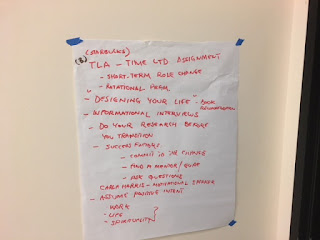 (STARBUCKS)
(B) TLA - TIME LTD ASSIGNMENT
- SHORT-TERM ROLE CHANGE
" - ROTATIONAL PRGM "
- DESIGNING YOUR LIFE - BOOK
- INFORMATIONAL INTERVIEWS
- DO YOUR RESEARCH BEFORE
YOU TRANSITION
- SUCCESS FACTORS
- COMMIT TO THE CHANGE
- FIND A MENTOR/GUIDE
- ASK QUESTIONS
CARLA HARRIS - MOTIVATIONAL SPEAKER
- ASSUME POSITIVE INTENT
WORK
- LIFE
- SPIRITUALITY